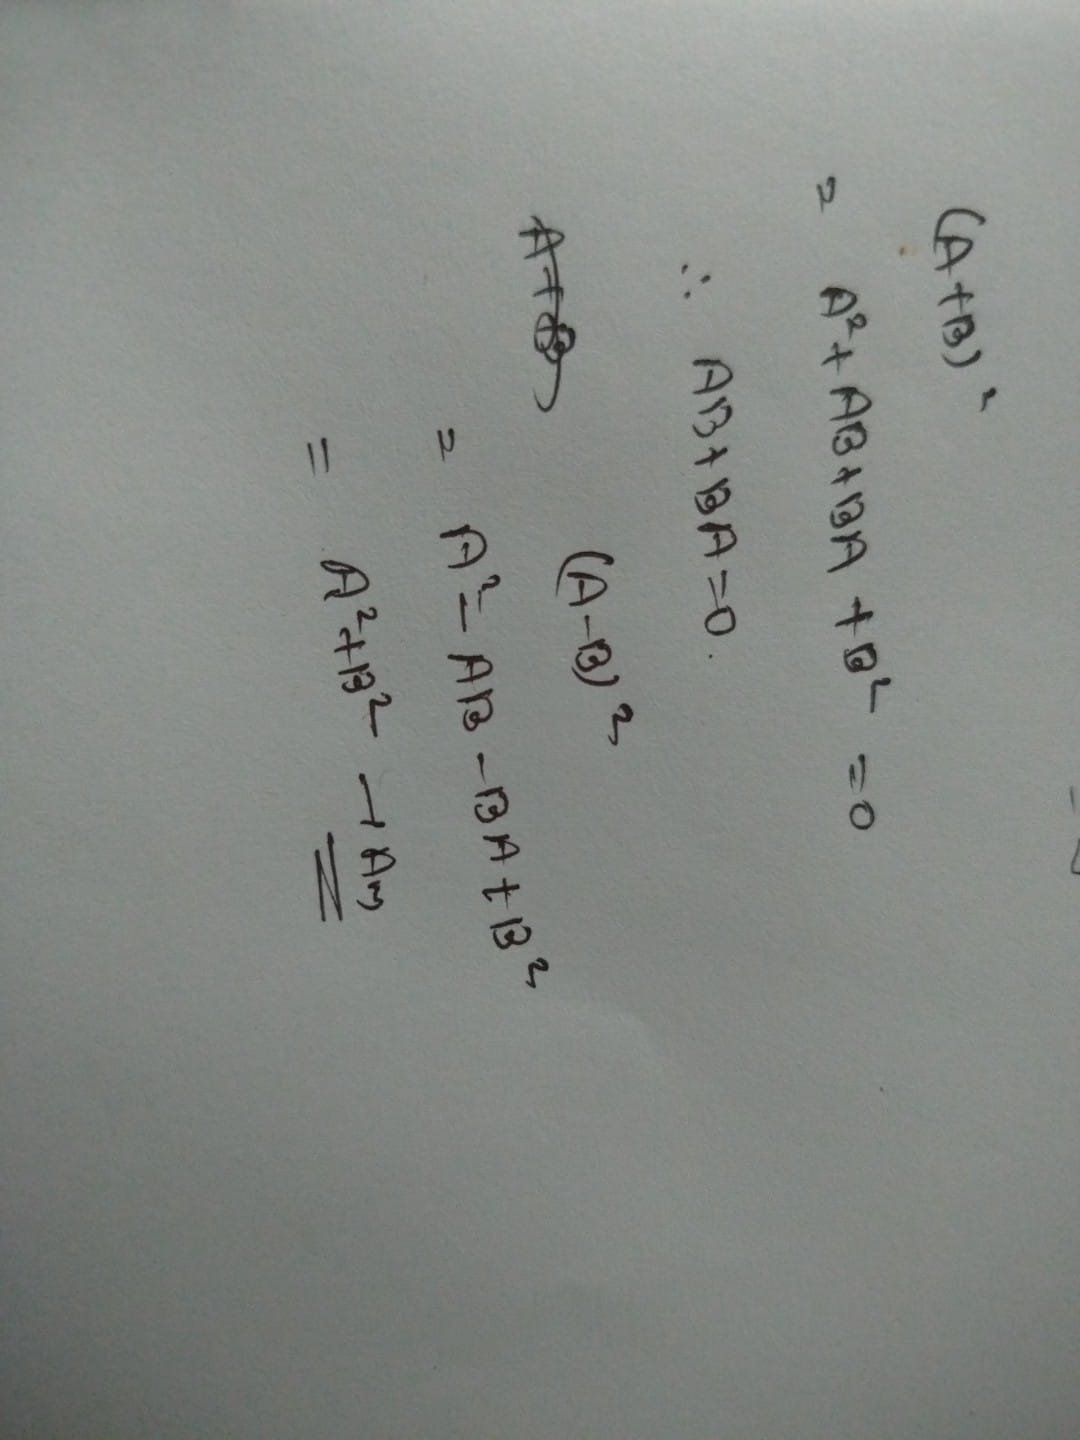 (A+B)²
= A²+AB+BA+B² =0
∴ AB+BA=0.
(A-B)²
A+B
= A²-AB-BA+B²
= A²+B² → Ans